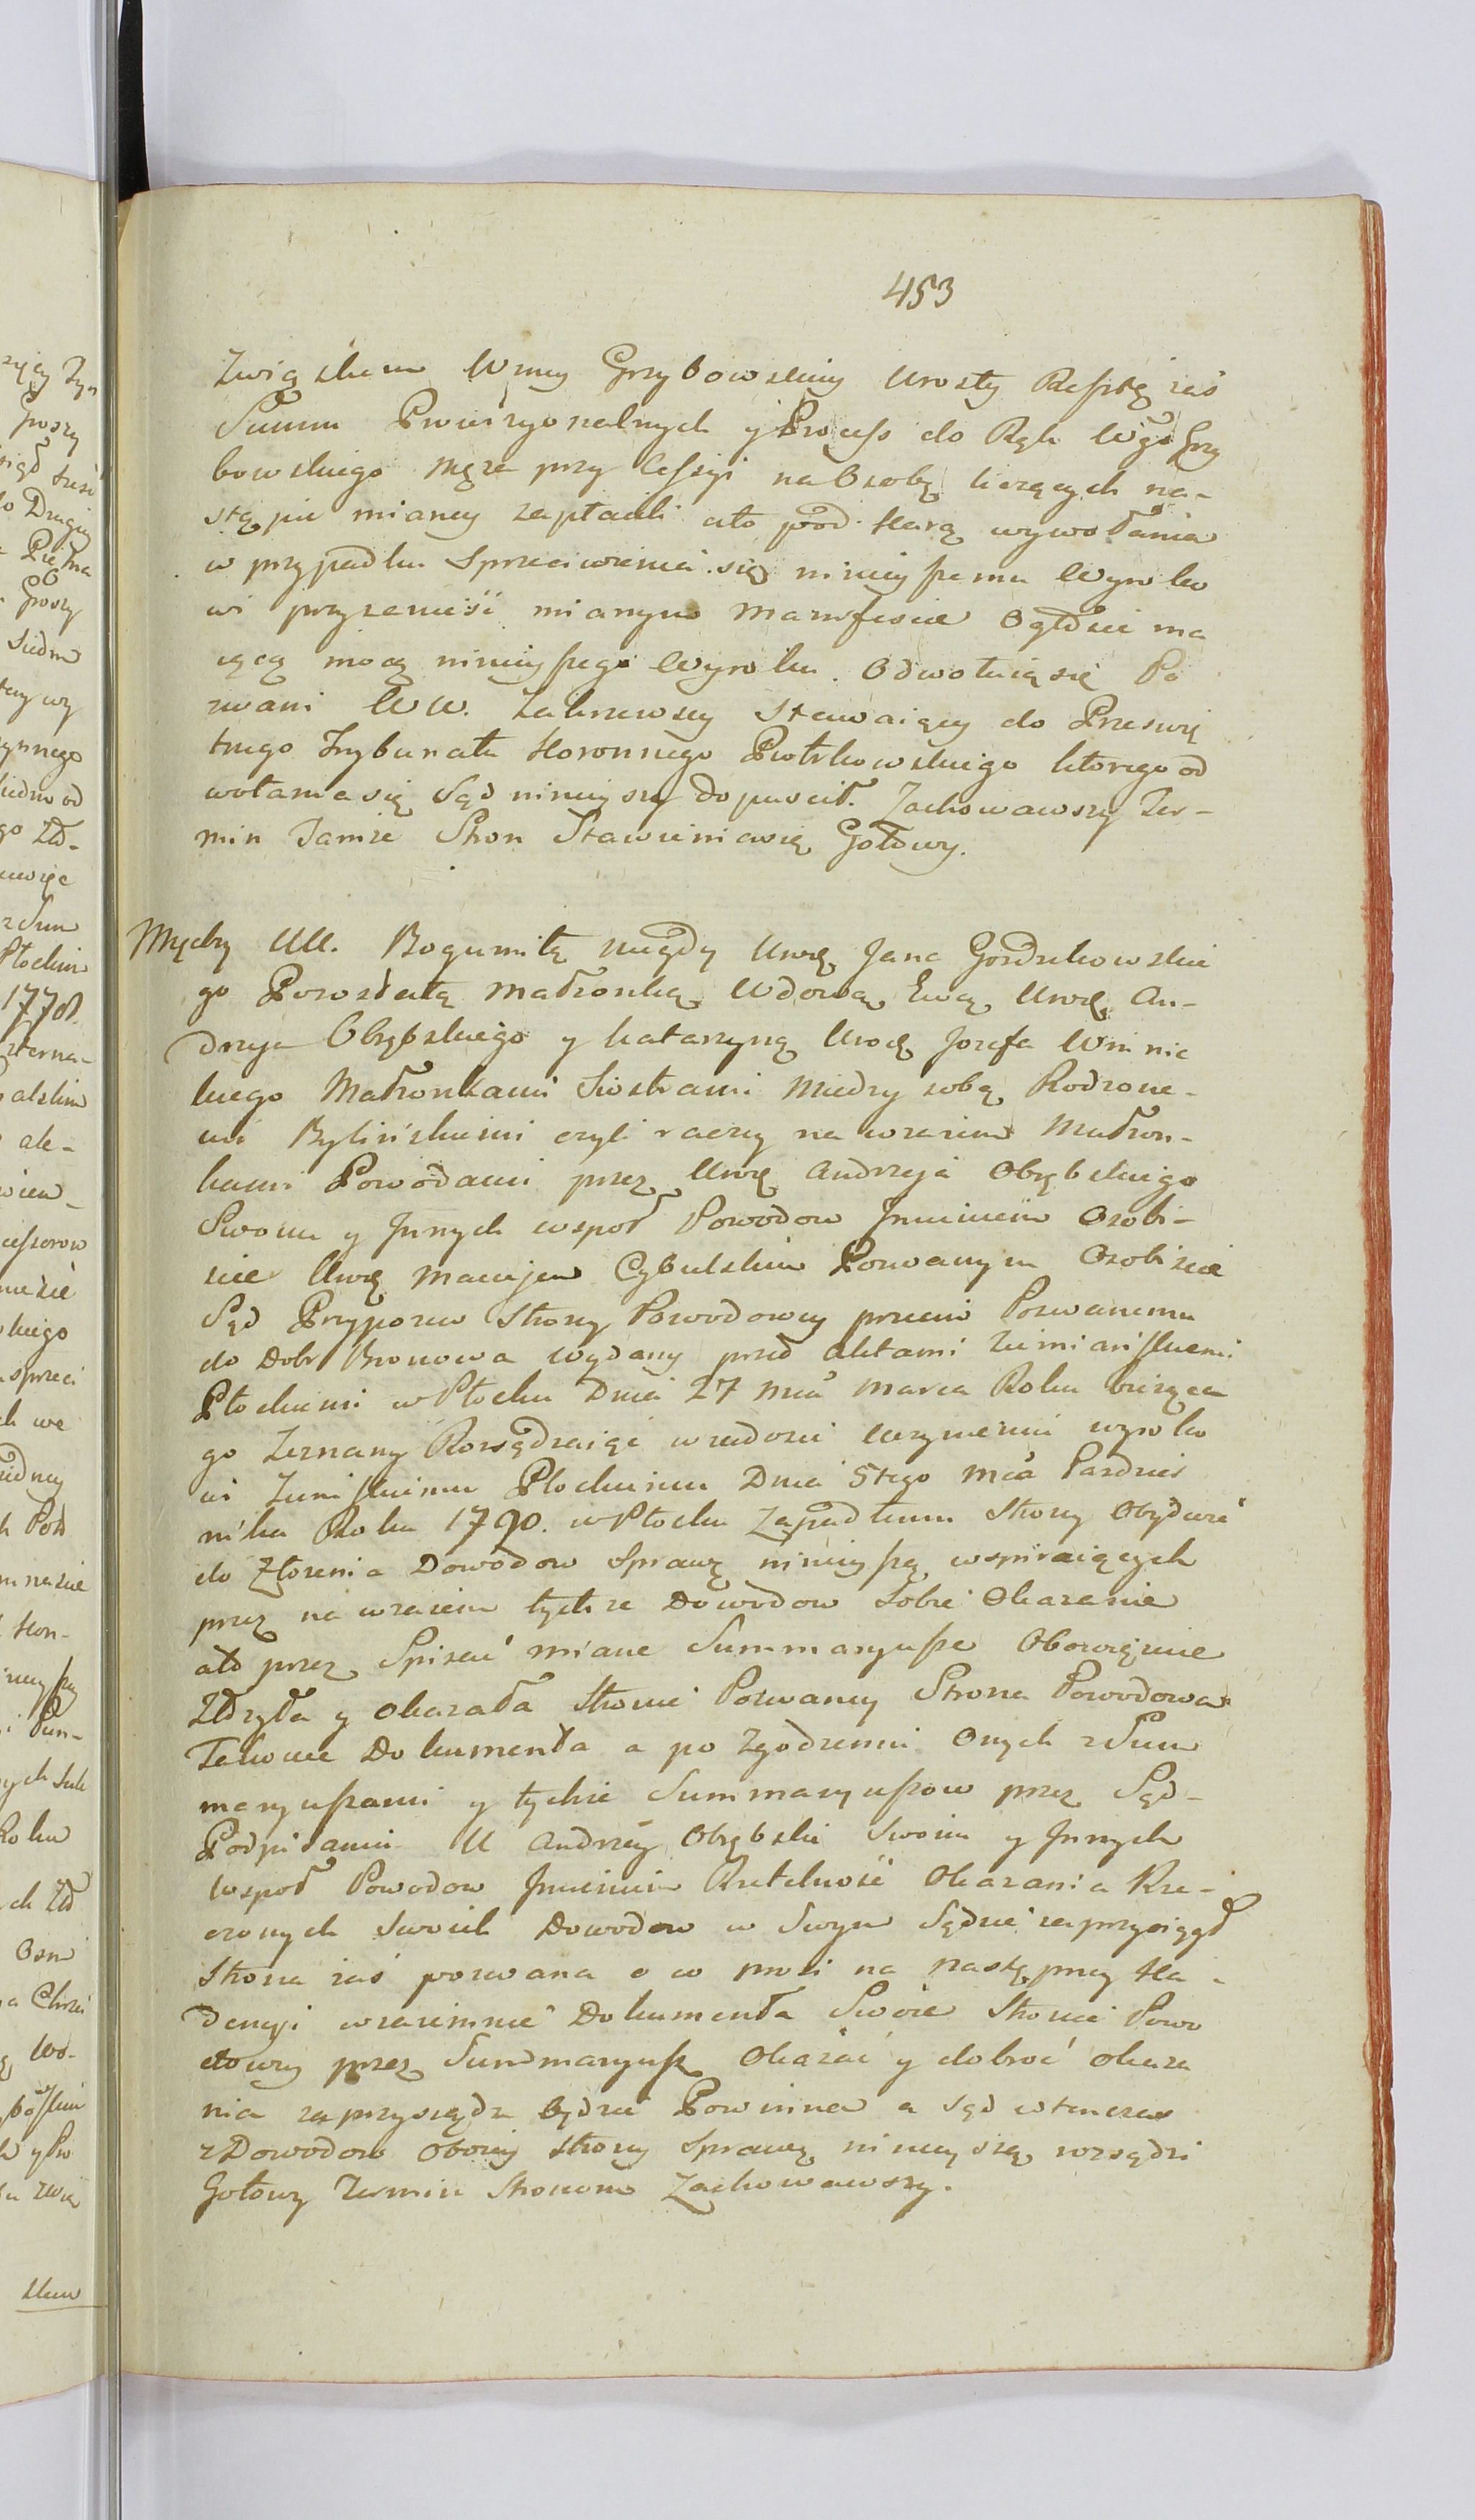 453
Związkiem Wney Grzybowskiey Urosły Resztę zaś
Summ Prowizyonalnych y Process do Rąk Wgo Grzy
bowskiego Męza przy Cessyi na Osobę liczących na-
stępnie mianey zapłacili a to pod Karą wywołania
w przypadku Sprzeciwienia się ninieyszemu Wyroko
wi przyzenieść mianym Manifescie Ogłosić ma
iącą mocą ninieyszego Wyroku. Odwołuią się Po
zwani WW. Zakrzewscy Stawaiący do Prześwię
tnego Trybunału Koronnego Piotrkowskiego ktorego od
wołania się Sąd ninieyszy dopuscił. Zachowawszy Ter-
min Tamże Stron Stawienia się Gotowy.
Między UU. Bogumiłą niegdy Uro Jana Gozdzikowskie
go Pozostałą Małzonką Wdową, Ewą Uro An-
drzeja Obrębskiego y Katarzyną Uro Jozefa Winnic
kiego Małzonkami Siostrami Miedzy sobą Rodzone-
mi Bylińskiemi czyli raczey nawzaiem Małzon-
kami Powodami przez Uro Andrzeja Obrębskiego
Swoim y Innych wspoł Powodow Imieniem Osobi-
scie Uro Maciejem Cybulskim Pozwanym Osobiscie
Sąd Przypozew Strony Powodowey przeciw Pozwanemu
do Dobr Bronowa wydany przed Aktami Ziemiańskiemi
Płockiemi w Płocku Dnia 27 Mca Marca Roku bieżące
go Zeznany Rozsądzaiąc w zadosić uczynieniu wyroko
wi Ziemskiemu Płockiemu Dnia 5tego Mca Pazdzier
nika Roku 1790. w Płocku Zapadłemu Strony Obydwie
do Złożenia Dowodow Sprawę ninieyszą wspieraiących
przez nawzaiem tychże Dowodow Sobie Okazanie
a to przez Spisać miane Summaryusze Obowięzuie
Zdrzyła y okazała Stronie Pozwaney Strona Powodowa
Takowe Dokumenta a po Zgodzeniu Onych z Sum
maryuszami y tychże Summaryuszow przez Sąd-
Podpisaniu U Andrzey Obrębski Swoim y Innych
wspoł Powodow Imieniem Rzetelność Okazania Rze-
czonych Swoich Dowodow w Swym Sądzie zaprzysiągł
Strona zaś pozwana o co prosi na następney Ka-
dencyi wzaiemnie Dokumenta Swoie Stronie Powo
dowey przez Summaryusz Okazać y dobroć okaza
nia zaprzysiądz Będzie Powinna a Sąd wtenczas
z Dowodow oboiey Strony Sprawę ninieyszą rozsądzi
Gotowy Termin Stronom Zachowawszy.